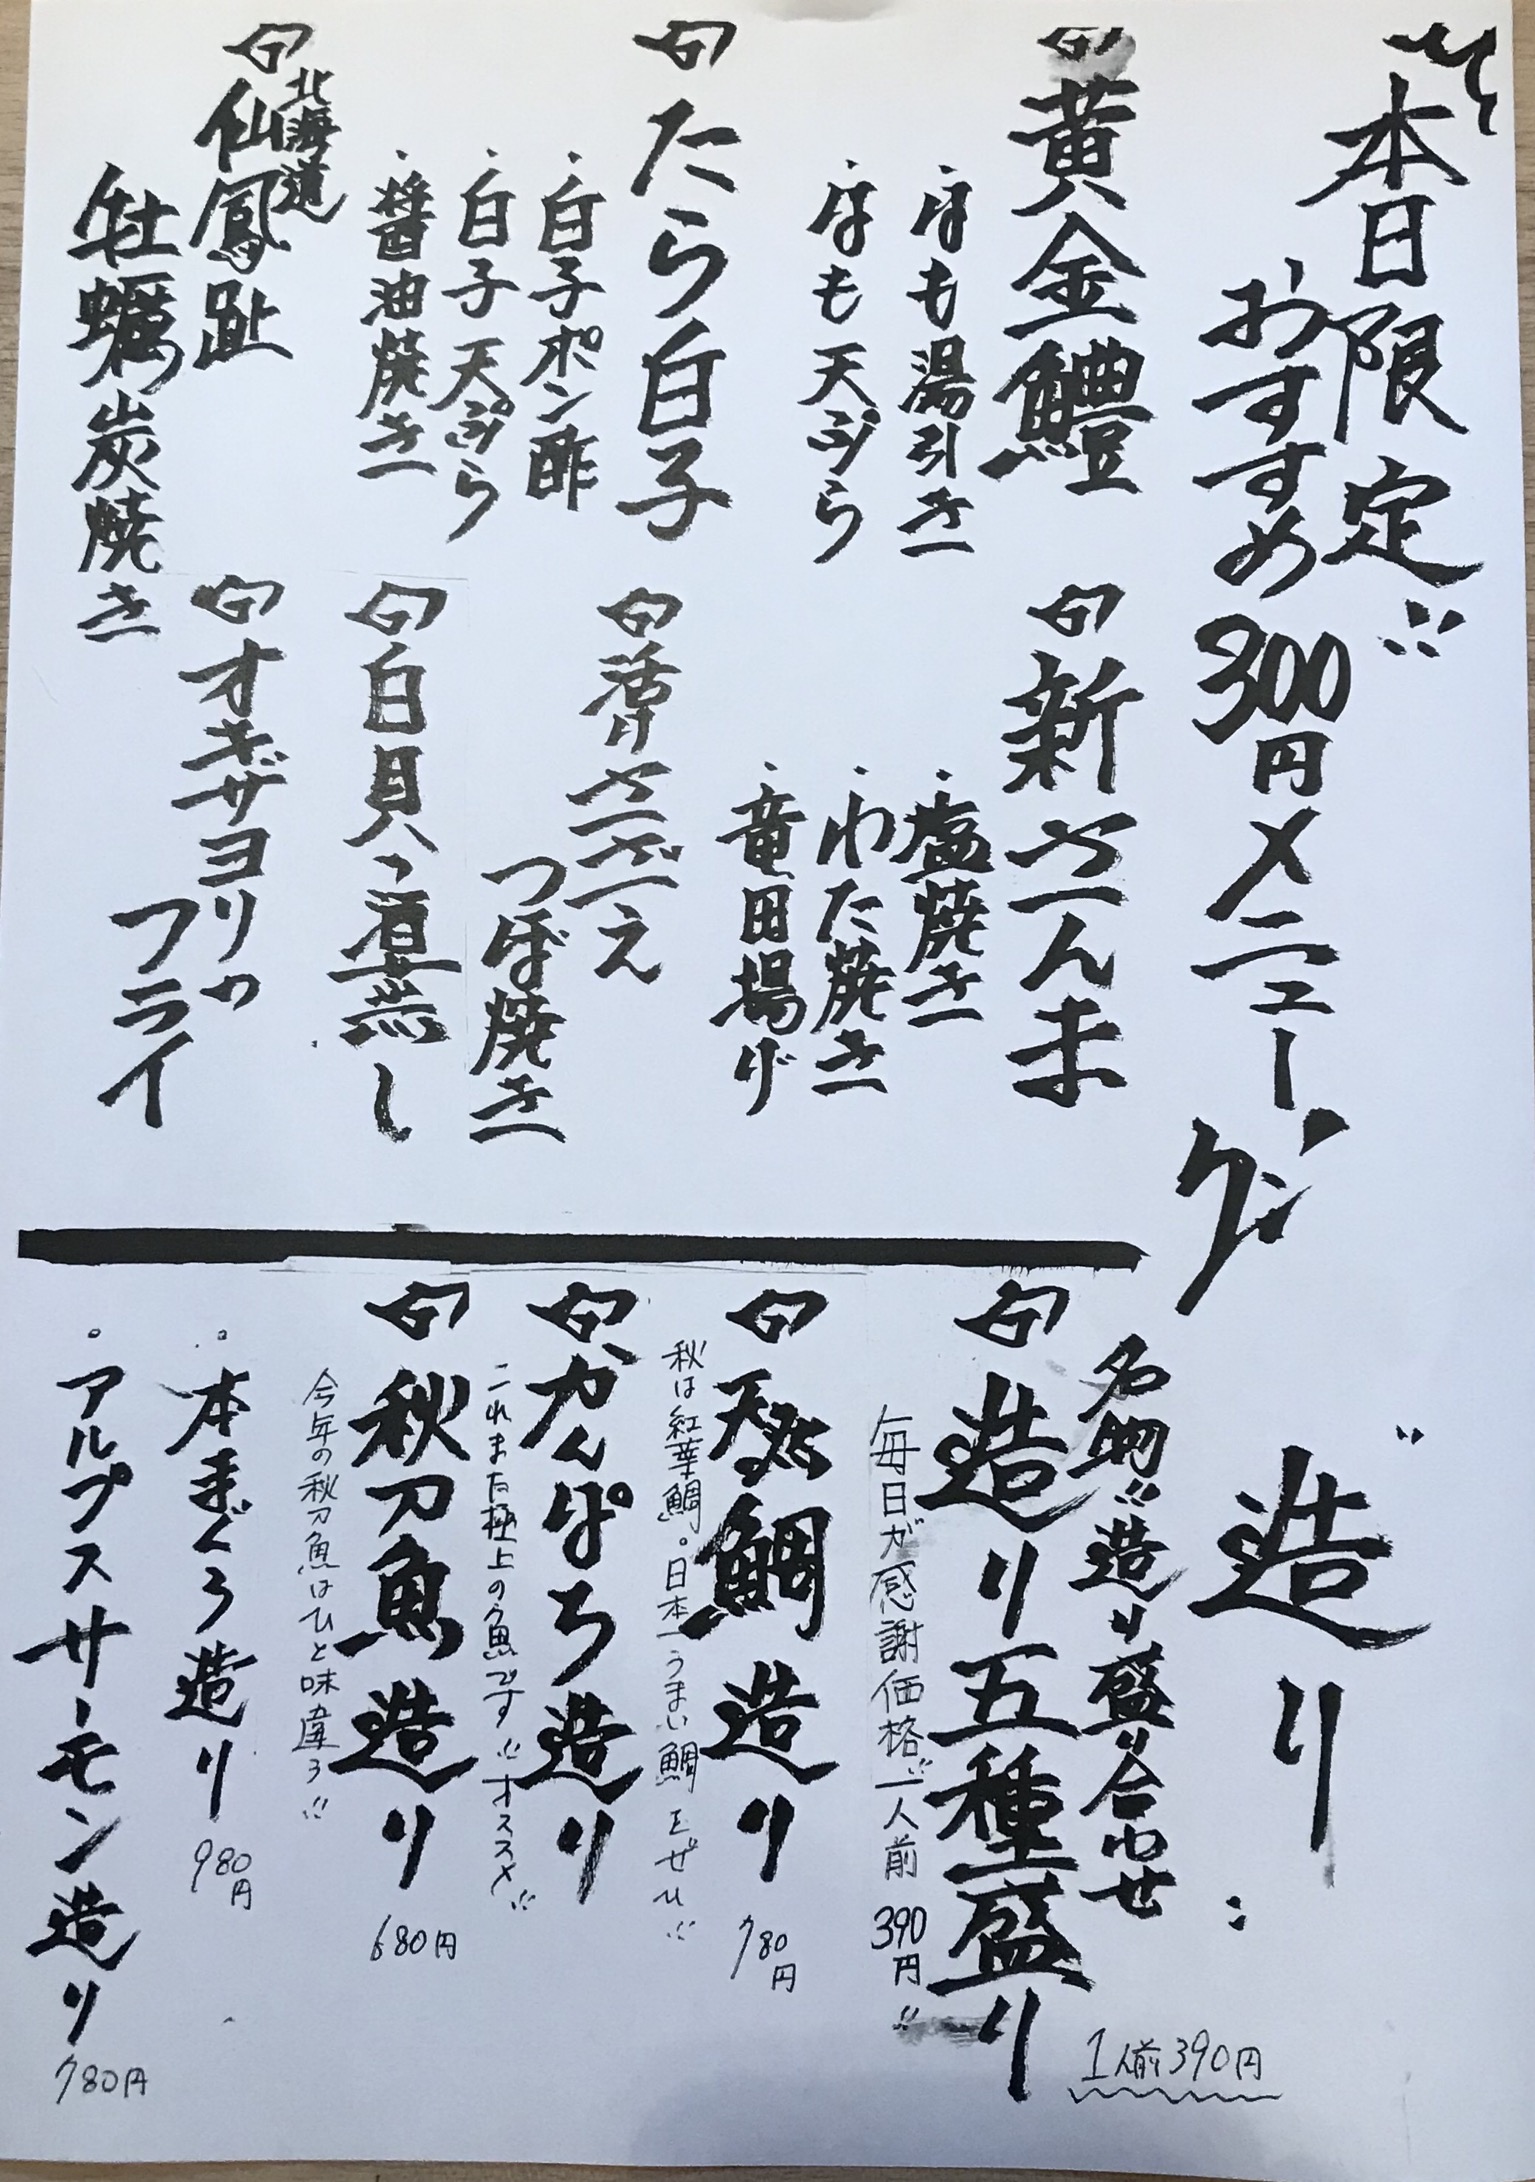 本日限定
おすすめ300円メニュー
黄金鱧
・はも湯引き
・はも天ぷら
たら白子
・白子ポン酢
・白子天ぷら
・醤油焼き
北海道
仙鳳趾
牡蠣炭焼き
新さんま
・塩焼き
・わた焼き
・竜田揚げ
活けさざえ
つぼ焼き
白貝の酒蒸し
オキザヨリの
フライ
造り
名物"造り盛り合わせ
1人前390円
造り五種盛り
毎日が感謝価格"一人前390円"
天然鯛造り
780円
秋は紅葉鯛。日本一うまい鯛をぜひ"
かんぱち造り
これまた極上の魚です"オススメ"
秋刀魚造り
680円
今年の秋刀魚はひと味違う"
。本まぐろ造り 980円
。アルプスサーモン造り 780円